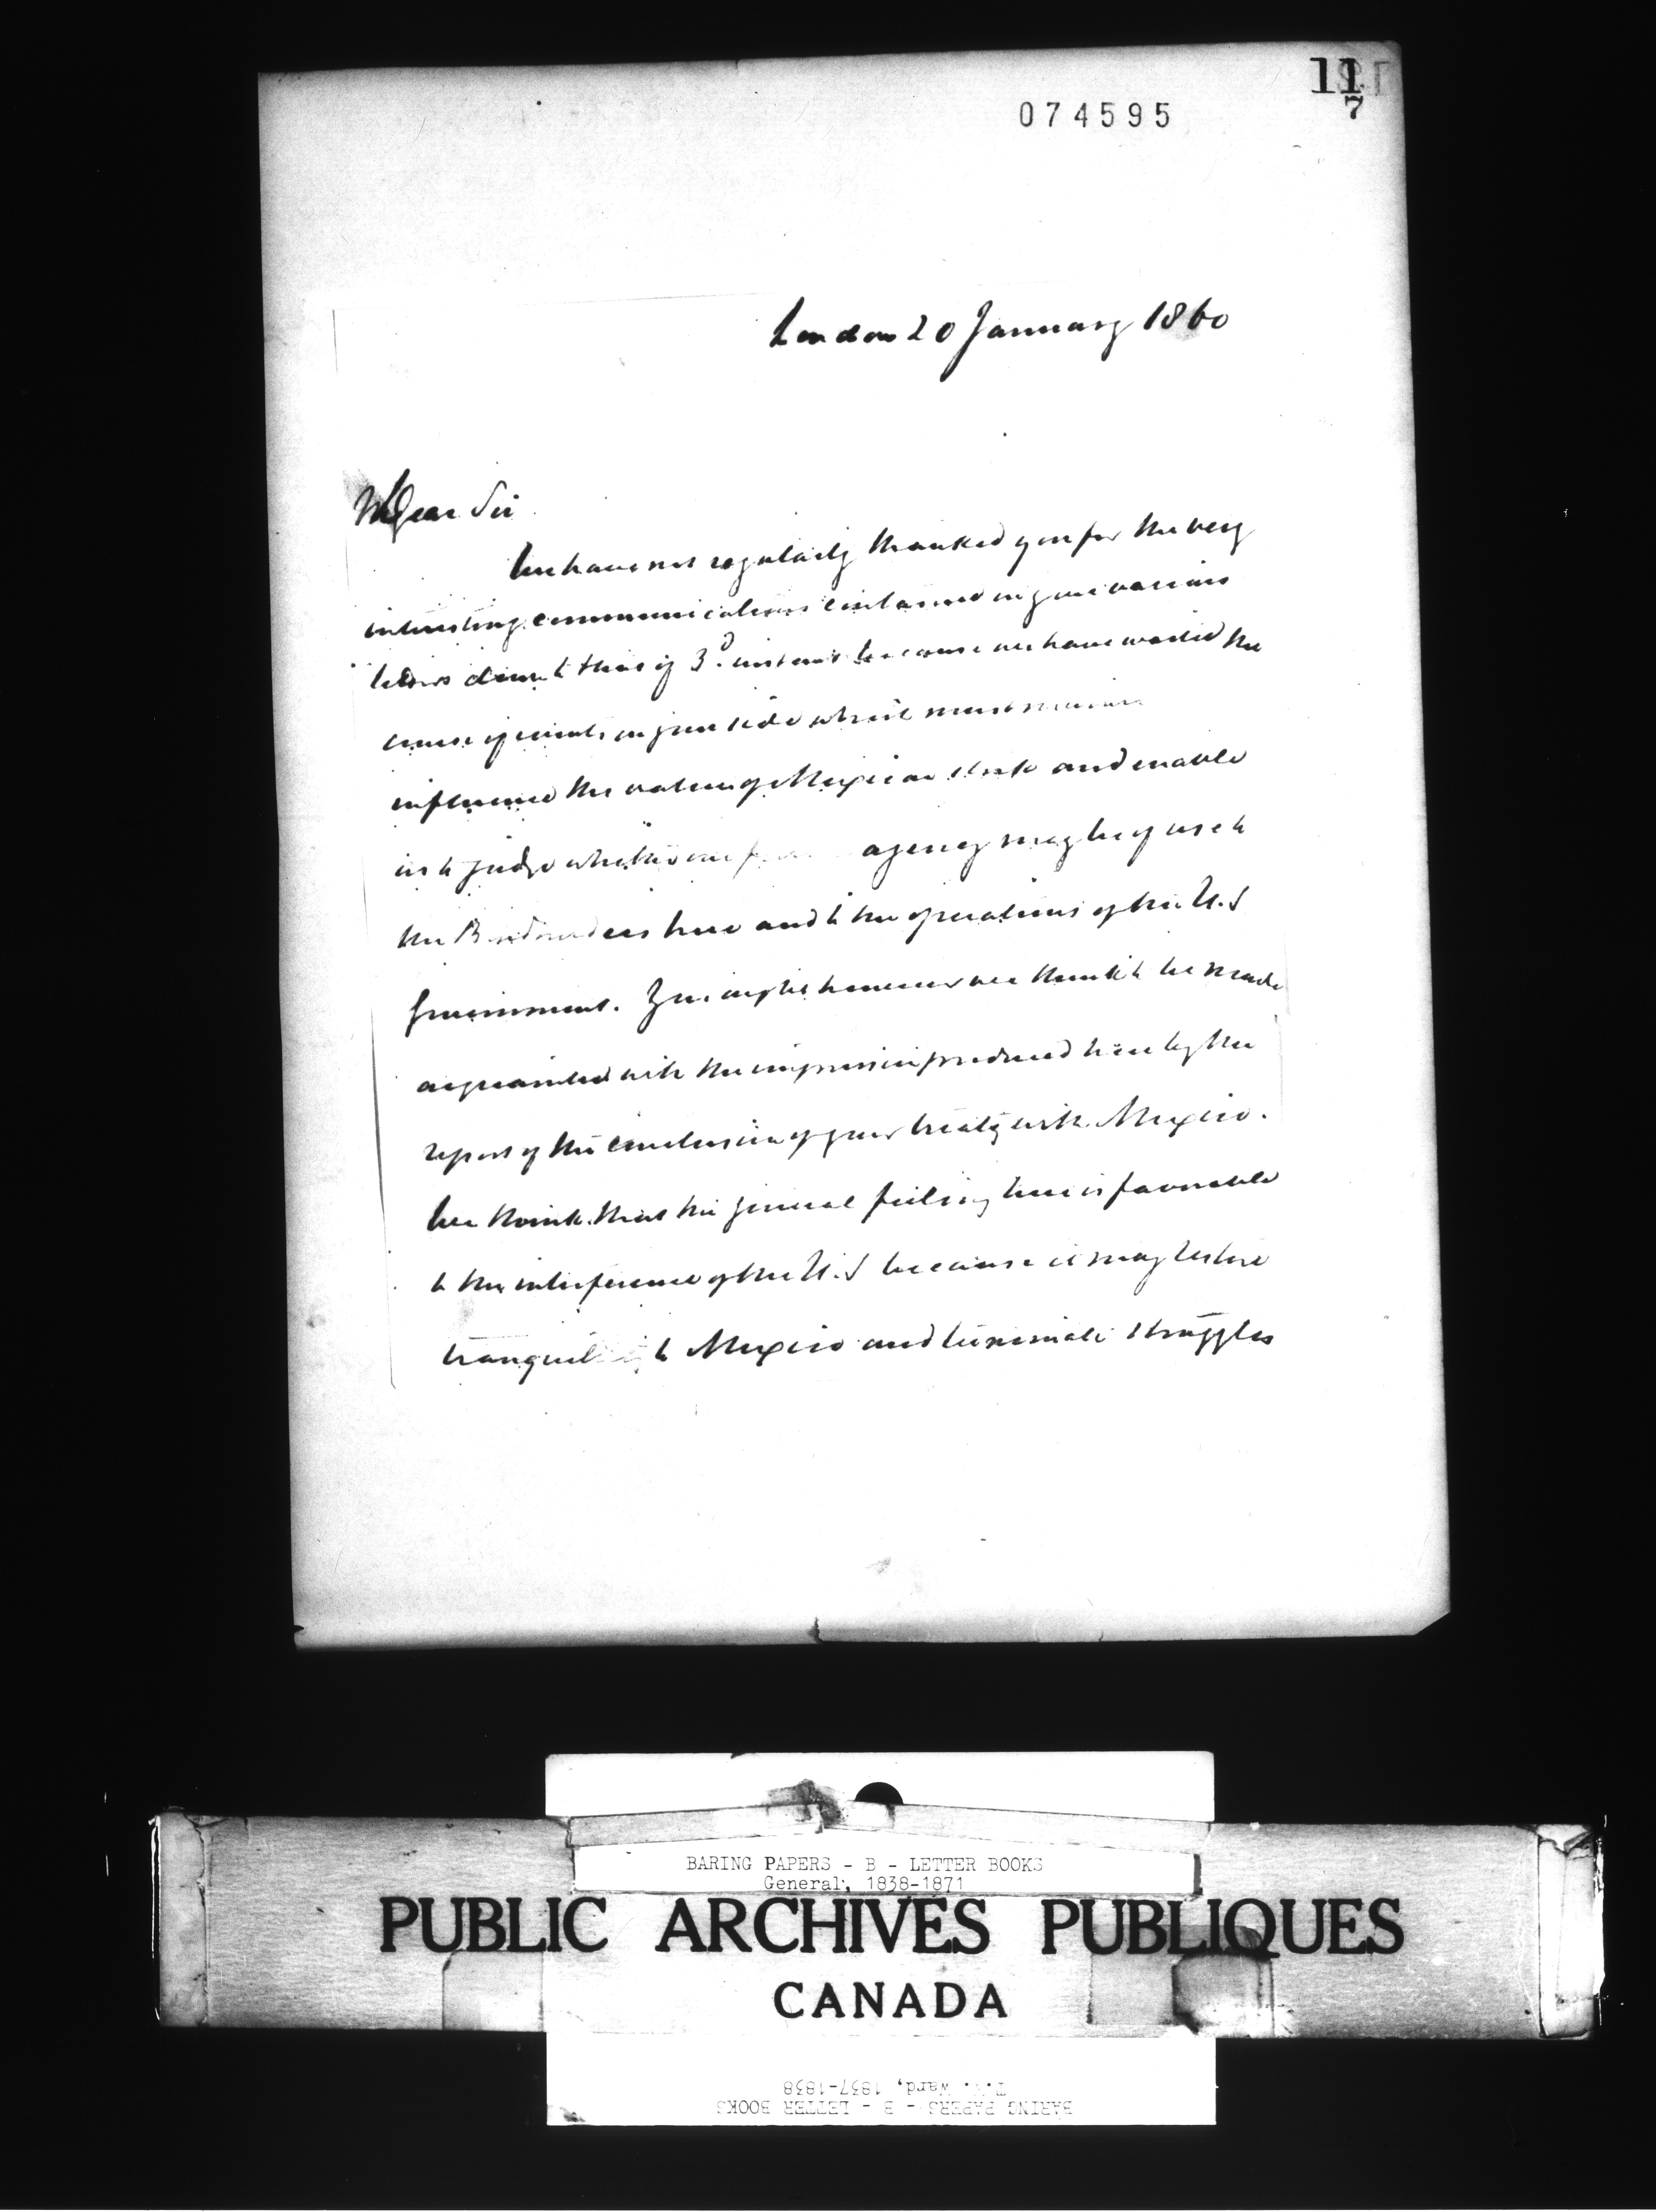 11
7
074595
London 20 January 1860
My Dear Sir
We have not regularly thanked you for the very
interesting communications contained in your various
letters down to that of 3d instant because we have waited the
course of events on your side which must
influence the value of Mexican stock and enable
us to judge whether our agency may be of use to
the Bondholders here and to the operations of the U.S
Government. You ought however we think to be made
acquainted with the impression produced here by the
report of the conclusion of your treaty with Mexico.
We think that the general feeling here is favorable
to the interference of the U.S because it may restore
tranquillity to Mexico and terminate struggles
BARING PAPERS - B - LETTER BOOKS
General, 1838-1871
PUBLIC ARCHIVES PUBLIQUES
CANADA
T.W. Ward, 1837-1838
BARING PAPERS - B - LETTER BOOKS